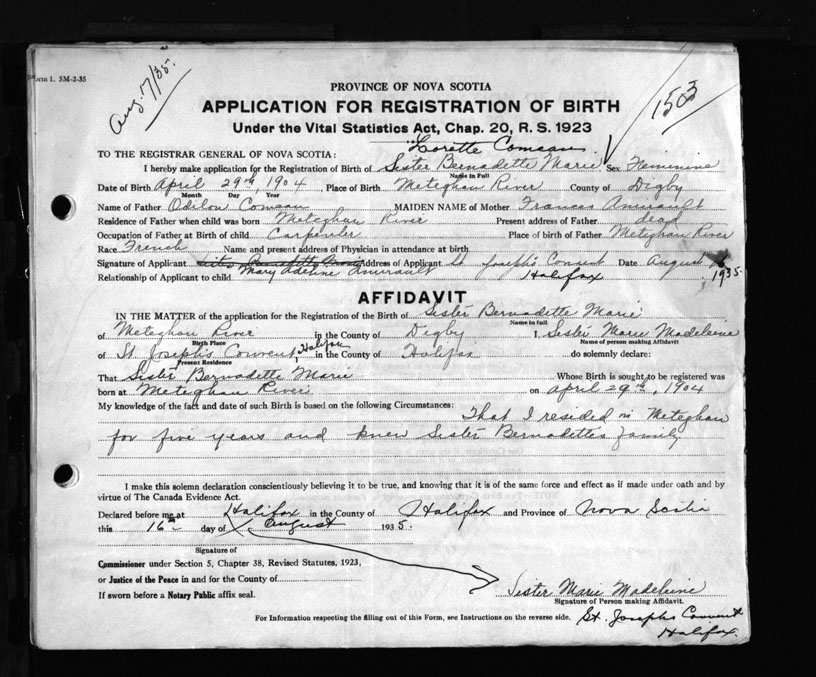 Form 1. 5M-2-35
Aug. 7/35.
1503
PROVINCE OF NOVA SCOTIA
APPLICATION FOR REGISTRATION OF BIRTH
Under the Vital Statistics Act, Chap. 20, R. S. 1923
Lorette Comeau
TO THE REGISTRAR GENERAL OF NOVA SCOTIA:
I hereby make application for the Registration of Birth of Sister Bernadette Marie Sex Feminine
Name in Full
Date of Birth April 29th, 1904, Place of Birth Meteghan River County of Digby
Month Day Year
Name of Father Odilon Comeau MAIDEN NAME of Mother Frances Amirault
Residence of Father when child was born Meteghan River Present address of Father dead
Occupation of Father at Birth of child Carpenter Place of birth of Father Meteghan River
Race French Name and present address of Physician in attendance at birth
Signature of Applicant Address of Applicant St. Joseph's Convent Date August
Mary Adeline Amirault Halifax 1935
Relationship of Applicant to child
AFFIDAVIT
IN THE MATTER of the application for the Registration of the Birth of Sister Bernadette Marie
Name in full
of Meteghan River in the County of Digby I, Sister Marie Madeleine
Birth Place Name of person making Affidavit
of St. Joseph's Convent, Halifax in the County of Halifax do solemnly declare:
Present Residence
That Sister Bernadette Marie Whose Birth is sought to be registered was
born at Meteghan River on April 29th, 1904
My knowledge of the fact and date of such Birth is based on the following Circumstances: That I resided in Meteghan
for five years and knew Sister Bernadette's family
I make this solemn declaration conscientiously believing it to be true, and knowing that it is of the same force and effect as if made under oath and by
virtue of The Canada Evidence Act.
Declared before me at Halifax in the County of Halifax and Province of Nova Scotia
this 16th day of August 1935.
Signature of
Commissioner under Section 5, Chapter 38, Revised Statutes, 1923,
or Justice of the Peace in and for the County of
If sworn before a Notary Public affix seal.
Sister Marie Madeleine
Signature of Person making Affidavit.
For Information respecting the filling out of this Form, see Instructions on the reverse side. St. Joseph's Convent
Halifax.